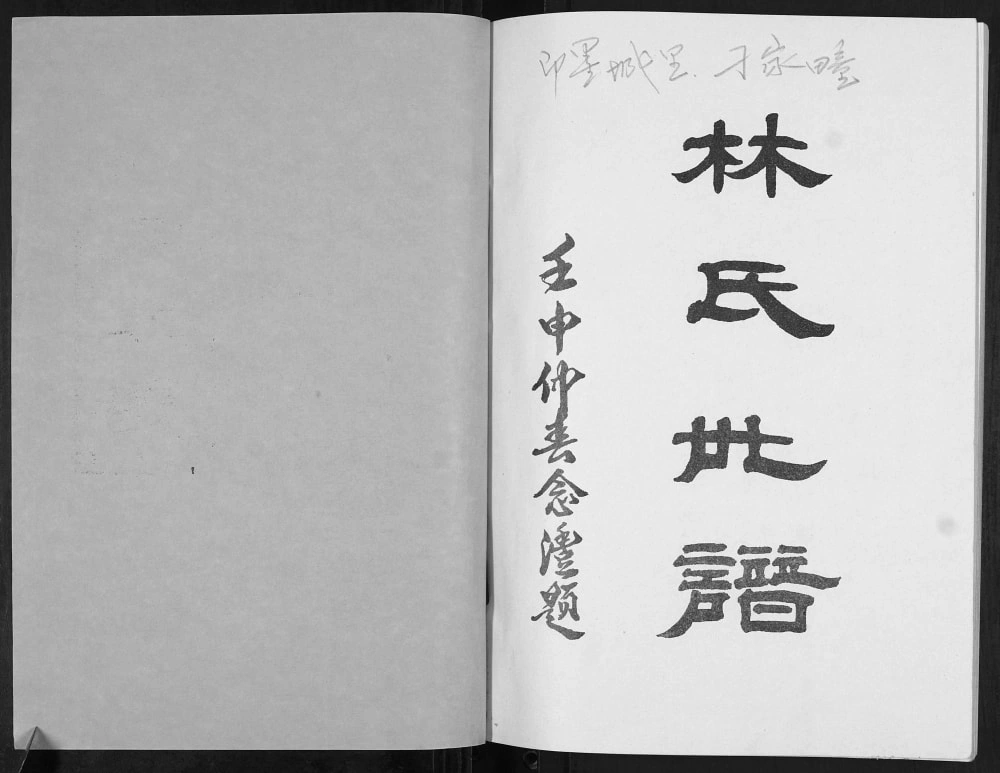 即墨城里.刁家疃
林氏世譜
壬申仲春念澧題